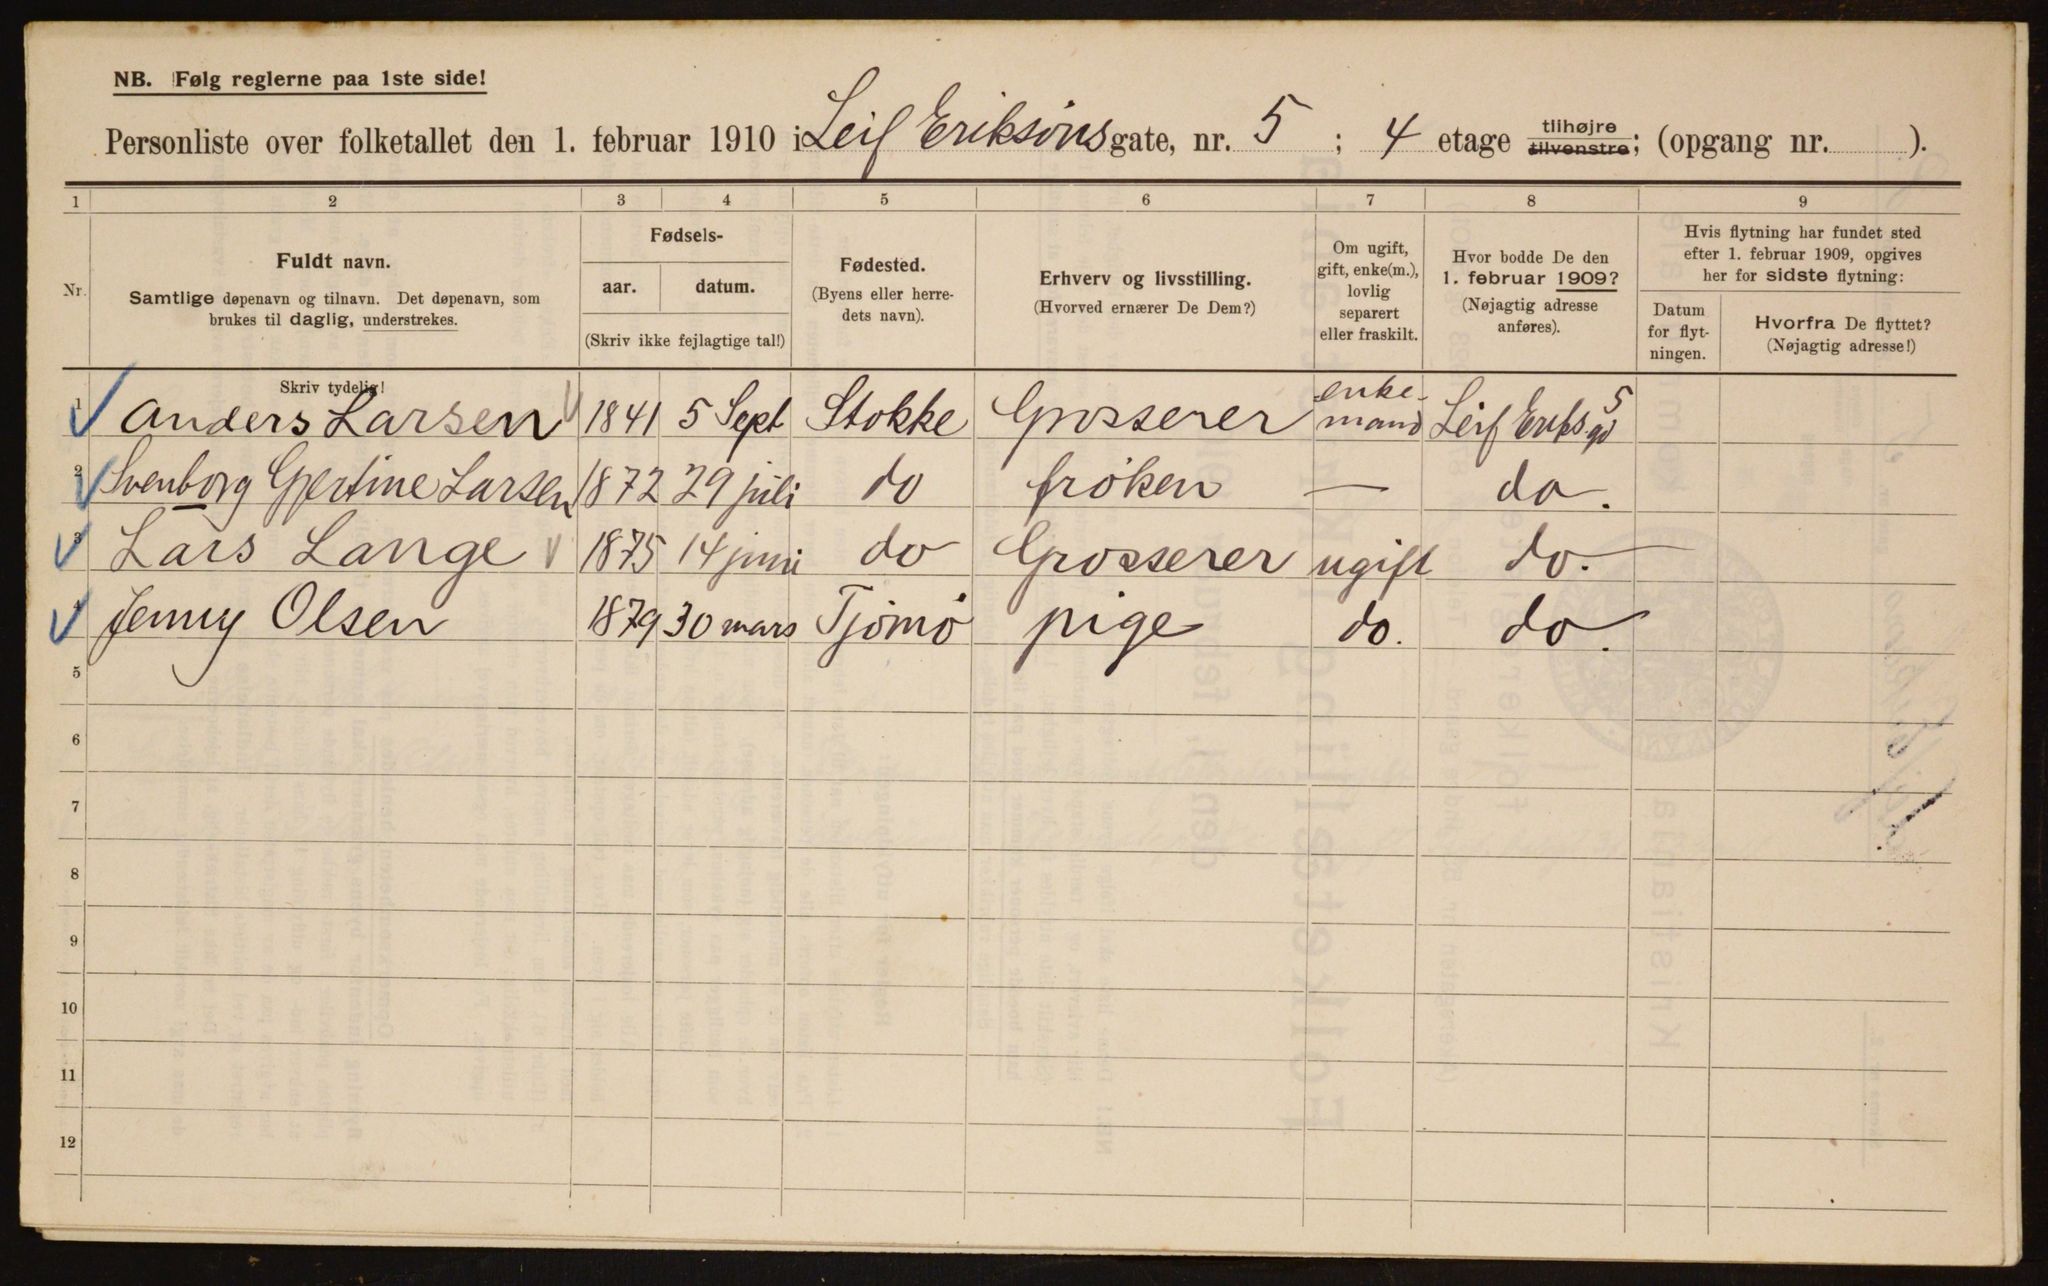 NB. Følg reglerne paa 1ste side!
Personliste over folketallet den 1. februar 1910 i Leif Eriksøns gate, nr. 5 ; 4 etage tilhøjre tilvenstre; (opgang nr. ).
1 2 3 4 5 6 7 8 9
Nr.
Fuldt navn.
Samtlige døpenavn og tilnavn. Det døpenavn, som
brukes til daglig, understrekes.
Skriv tydelig!
Fødsels-
aar. datum.
(Skriv ikke fejlagtige tal!)
Fødested.
(Byens eller herre-
dets navn).
Erhverv og livsstilling.
(Hvorved ernærer De Dem?)
Om ugift,
gift, enke(m.),
lovlig
separert
eller fraskilt.
Hvor bodde De den
1. februar 1909?
(Nøjagtig adresse
anføres).
Hvis flytning har fundet sted
efter 1. februar 1909, opgives
her for sidste flytning:
Datum
for flyt-
ningen.
Hvorfra De flyttet?
(Nøjagtig adresse!)
1 Anders Larsen 1841 5 Sept Stokke Grosserer enke-mand Leif Eriks gd 5
2 Svenborg Gjertine Larsen 1872 29 juli do frøken — do.
3 Lars Lange 1875 14 juni do Grosserer ugift do.
4 Jenny Olsen 1879 30 mars Tjømø pige do. do.
5
6
7
8
9
10
11
12